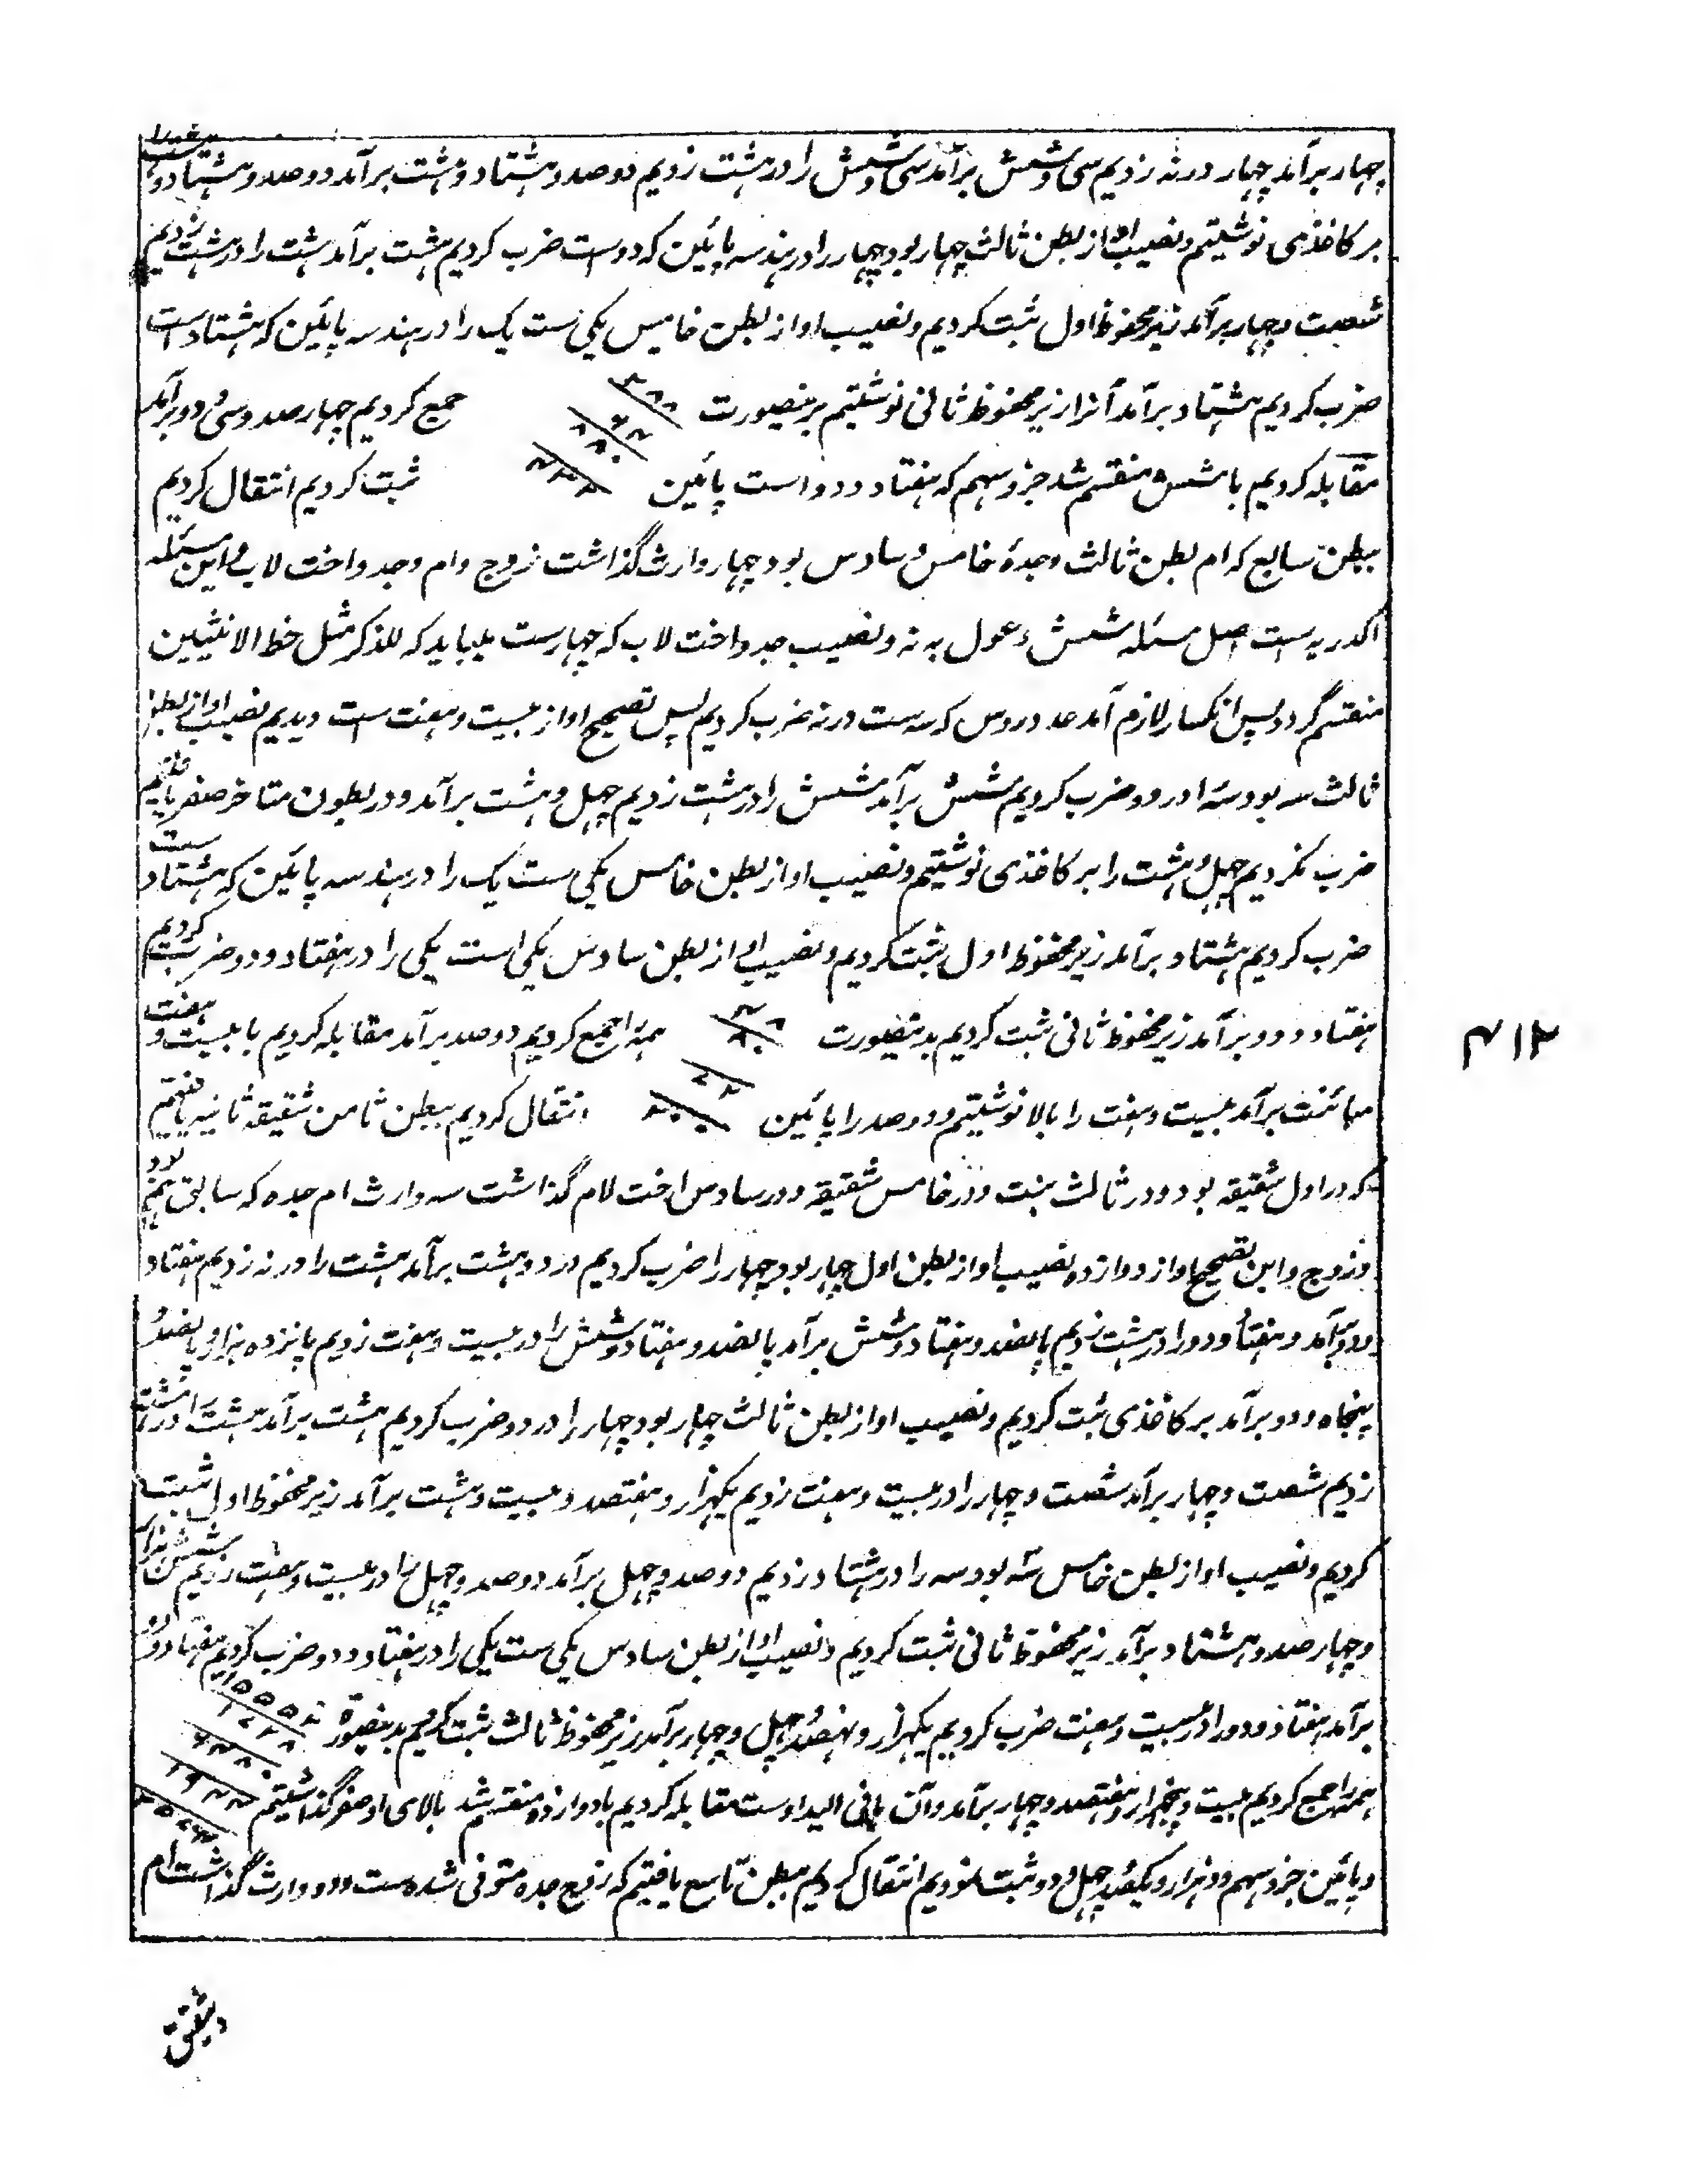 چهار برآمد چهار در نه زدیم سی و شش برآمد سی و شش را در هشت زدیم دو صد و هشتاد و هشت برآمد دو صد و هشتاد و هشت را
بر کاغذی نوشتیم و نصیب او از بطن ثالث چهار بود چهار را در هندسه پائین که دو است ضرب کردیم هشت برآمد هشت را در هشت زدیم
شصت و چهار برآمد زیر محفوظ اول ثبت کردیم و نصیب او از بطن خامس یکی ست یک را در هندسه پائین که هشتاد است
ضرب کردیم هشتاد برآمد آنرا زیر محفوظ ثانی نوشتیم برینصورت ۲۸۸ ۶۴ ۸۰ جمع کردیم چهار صد و سی و دو برآمد
مقابله کردیم با شش منقسم شد جزو سهم که هفتاد و دو است پائین ۴۳۲ ثبت کردیم انتقال کردیم
ببطن سابع که ام بطن ثالث وجدهٔ خامس و سادس بود چهار وارث گذاشت زوج وام وجد واخت لاب و این مسئله
اکدریه ست اصل مسئله شش و عول به نه و نصیب جد واخت لاب که چهارست باید که للذکر مثل حظ الانثیین
منقسم گردد پس انکسار لازم آمد عدد روس که سه ست در نه ضرب کردیم پس تصحیح او از بیست و هفت ست دیدیم نصیب او از بطن
ثالث سه بود سه را در دو ضرب کردیم شش برآمد شش را در هشت زدیم چهل و هشت برآمد و در بطون متاخر صفر یافتیم
ضرب نکردیم چهل و هشت را بر کاغذی نوشتیم و نصیب او از بطن خامس یکی ست یک را در هندسه پائین که هشتاد ست
ضرب کردیم هشتاد برآمد زیر محفوظ اول ثبت کردیم و نصیب او از بطن سادس یکی است یکی را در هفتاد و دو ضرب کردیم
هفتاد و دو برآمد زیر محفوظ ثانی ثبت کردیم بدینصورت ۴۸ ۸۰ همه را جمع کردیم دو صد برآمد مقابله کردیم با بیست و هفت
مبائنت برآمد بیست و هفت را بالا نوشتیم و دو صد را پائین ۷۲ ۲۰۰ انتقال کردیم ببطن ثامن شقیقه ثانیه یافتیم
که در اول شقیقه بود و در ثالث بنت و در خامس شقیقه و در سادس اخت لام گذاشت سه وارث ام جده که سابق هم بود
و زوج و ابن تصحیح او از دوازده و نصیب او از بطن اول چهار بود چهار را ضرب کردیم در دو هشت برآمد هشت را در نه زدیم هفتاد
و دو برآمد و هفتاد و دو را در هشت زدیم پانصد و هفتاد و شش برآمد پانصد و هفتاد و شش را در بیست و هفت زدیم پانزده هزار و پانصد و
پنجاه و دو برآمد بر کاغذی ثبت کردیم و نصیب او از بطن ثالث چهار بود چهار را در دو ضرب کردیم هشت برآمد هشت را در هشت
زدیم شصت و چهار برآمد شصت و چهار را در بیست و هفت زدیم یکهزار و هفتصد و بیست و هشت برآمد زیر محفوظ اول ثبت
کردیم و نصیب او از بطن خامس سه بود سه را در هشتاد زدیم دو صد و چهل برآمد دو صد و چهل را در بیست و هفت زدیم شش هزار
و چهار صد و هشتاد برآمد زیر محفوظ ثانی ثبت کردیم و نصیب او از بطن سادس یکی ست یکی را در هفتاد و دو ضرب کردیم هفتاد و دو
برآمد هفتاد و دو را در بیست و هفت ضرب کردیم یکهزار و نهصد و چهل و چهار برآمد زیر محفوظ ثالث ثبت کردیم بدینصورت ۱۵۵۵۲ ۱۷۲۸ ۶۴۸۰
همه را جمع کردیم بیست و پنجهزار و هفتصد و چهار برآمد و آن مافی الید اوست مقابله کردیم با دوازده منقسم شد بالای او صفر گذاشتیم ۱۹۴۴ ۲۵۷۰۴
و پائین جزو سهم دو هزار و یکصد و چهل و دو ثبت نمودیم انتقال کردیم ببطن تاسع یافتیم که زوج جده متوفی شده ست و دو وارث گذاشت ام
۴۱۲